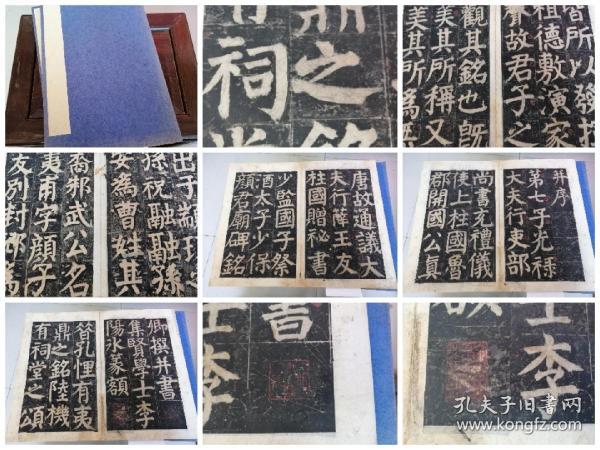 鼎之銘
有祠堂
皆所以發揮
祖德敷演家
聲故君子之
觀其銘也既
美其所稱又
美其所為
出于顓頊之
孫祝融融孫
安為曹姓其
裔邾武公名
夷甫字顏子
友別封郳為
唐故通議大
夫行薛王友
柱國贈祕書
少監國子祭
酒太子少保
顏君廟碑銘
并序
第七子光祿
大夫行吏部
尚書充禮儀
使上柱國魯
郡開國公真
卿撰并書
集賢學士李
陽冰篆額
昔孔悝有夷
鼎之銘陸機
有祠堂之頌
士李
書
士李
孔夫子旧书网
www.kongfz.com